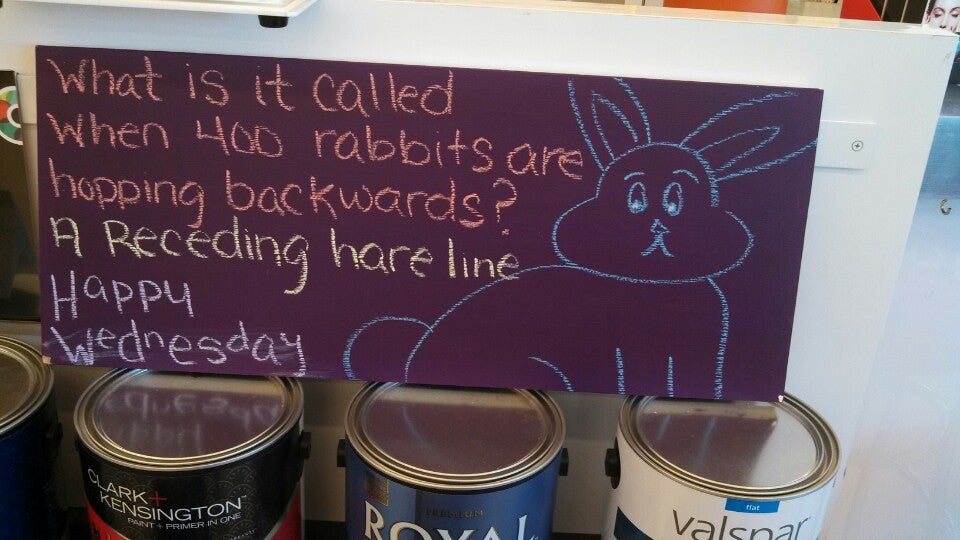 What is it called
When 400 rabbits are
hopping backwards?
A Receding hare line
Happy
Wednesday
CLARK+
KENSINGTON™
PAINT + PRIMER IN ONE
PREMIUM
ROYAL
flat
valspar